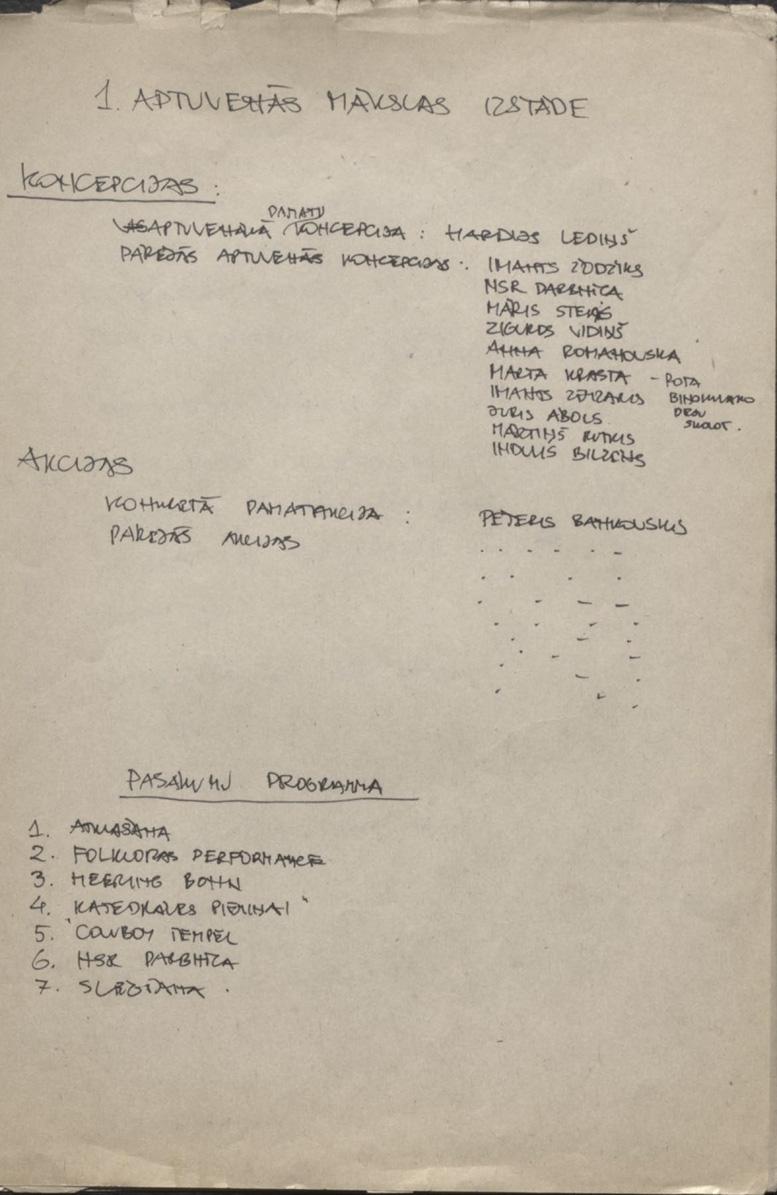 1. APTUVENĀS MĀKSLAS IZSTĀDE
KONCEPCIJAS :
PAMATU
VISAPTUVENĀKĀ KONCEPCIJA : HARDIJS LEDIŅŠ
PĀRĒJĀS APTUVENĀS KONCEPCIJAS : IMANTS ŽODŽIKS
NSR DARBNĪCA
MĀRIS
ZIGURDS VIDIŅŠ
ANNA ROMANOVSKA
MARTA KRASTA - POTA
IMANTS ZEMZARIS BINOKULARO
JURIS ĀBOLS
MĀRTIŅŠ RUTĶIS
INDULIS BILZĒNS
AKCIJAS
KONKRĒTĀ PAMATAKCIJA : PĒTERIS BANKOVSKIS
PĀRĒJĀS AKCIJAS
PASĀKUMU PROGRAMMA
1. ATKLĀŠANA
2. FOLKLORAS PERFORMANCE
3. MEETING BONN
4. "KATEDRĀLES PIEMIŅAI"
5. "COWBOY TEMPEL
6. NSR DARBNĪCA
7. SLĒGŠANA .